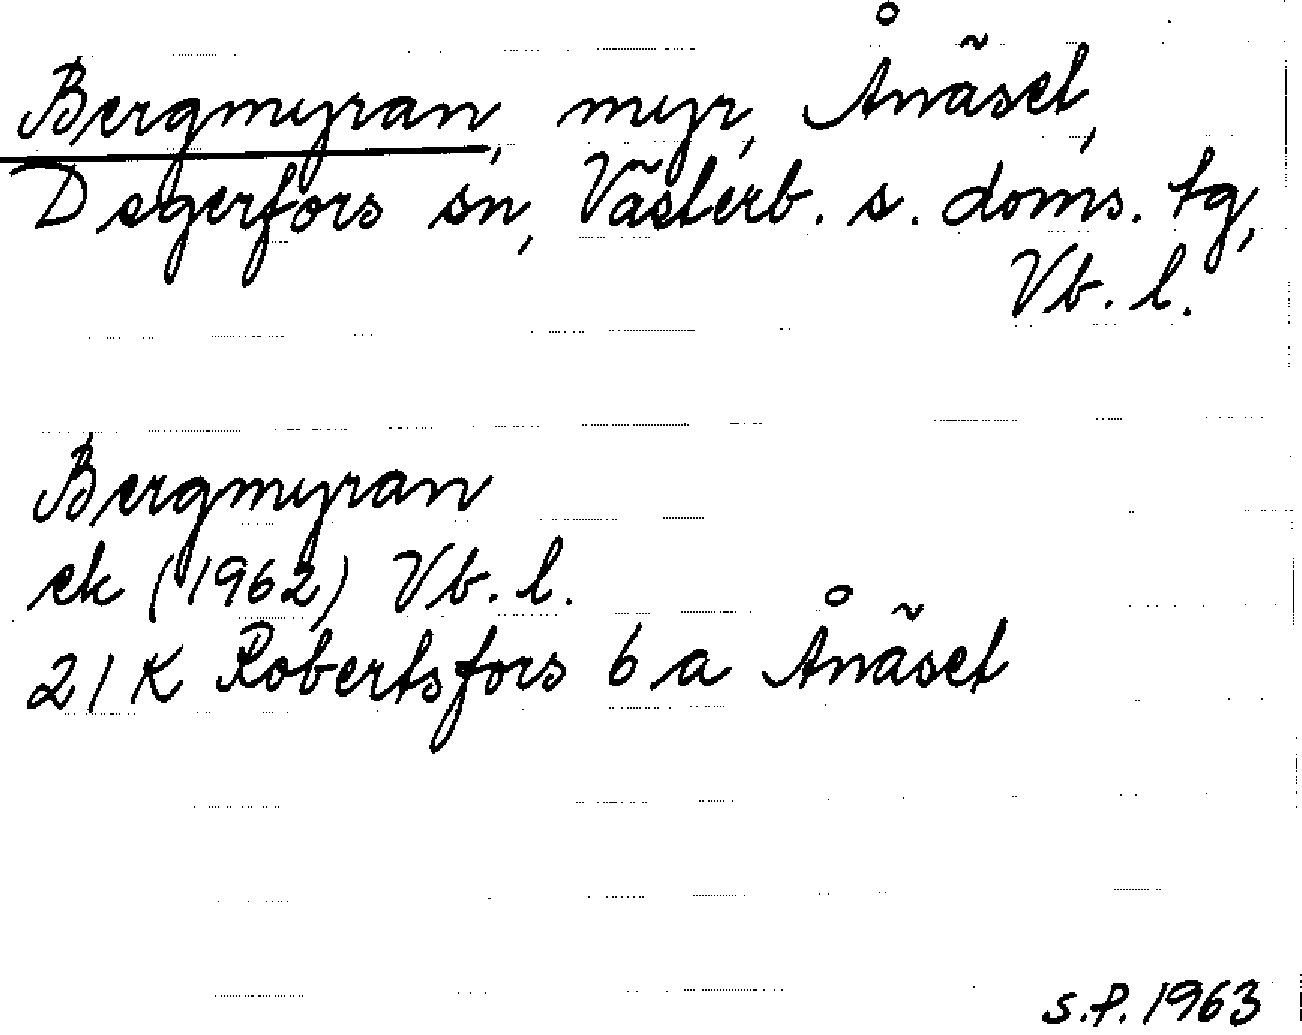 Bergmyran, myr, Ånäset,
Degerfors sn, Västerb. s. doms. tg,
Vb. l.
Bergmyran
ek (1962) Vb. l.
21 K Robertsfors 6 a Ånäset
S.P. 1963